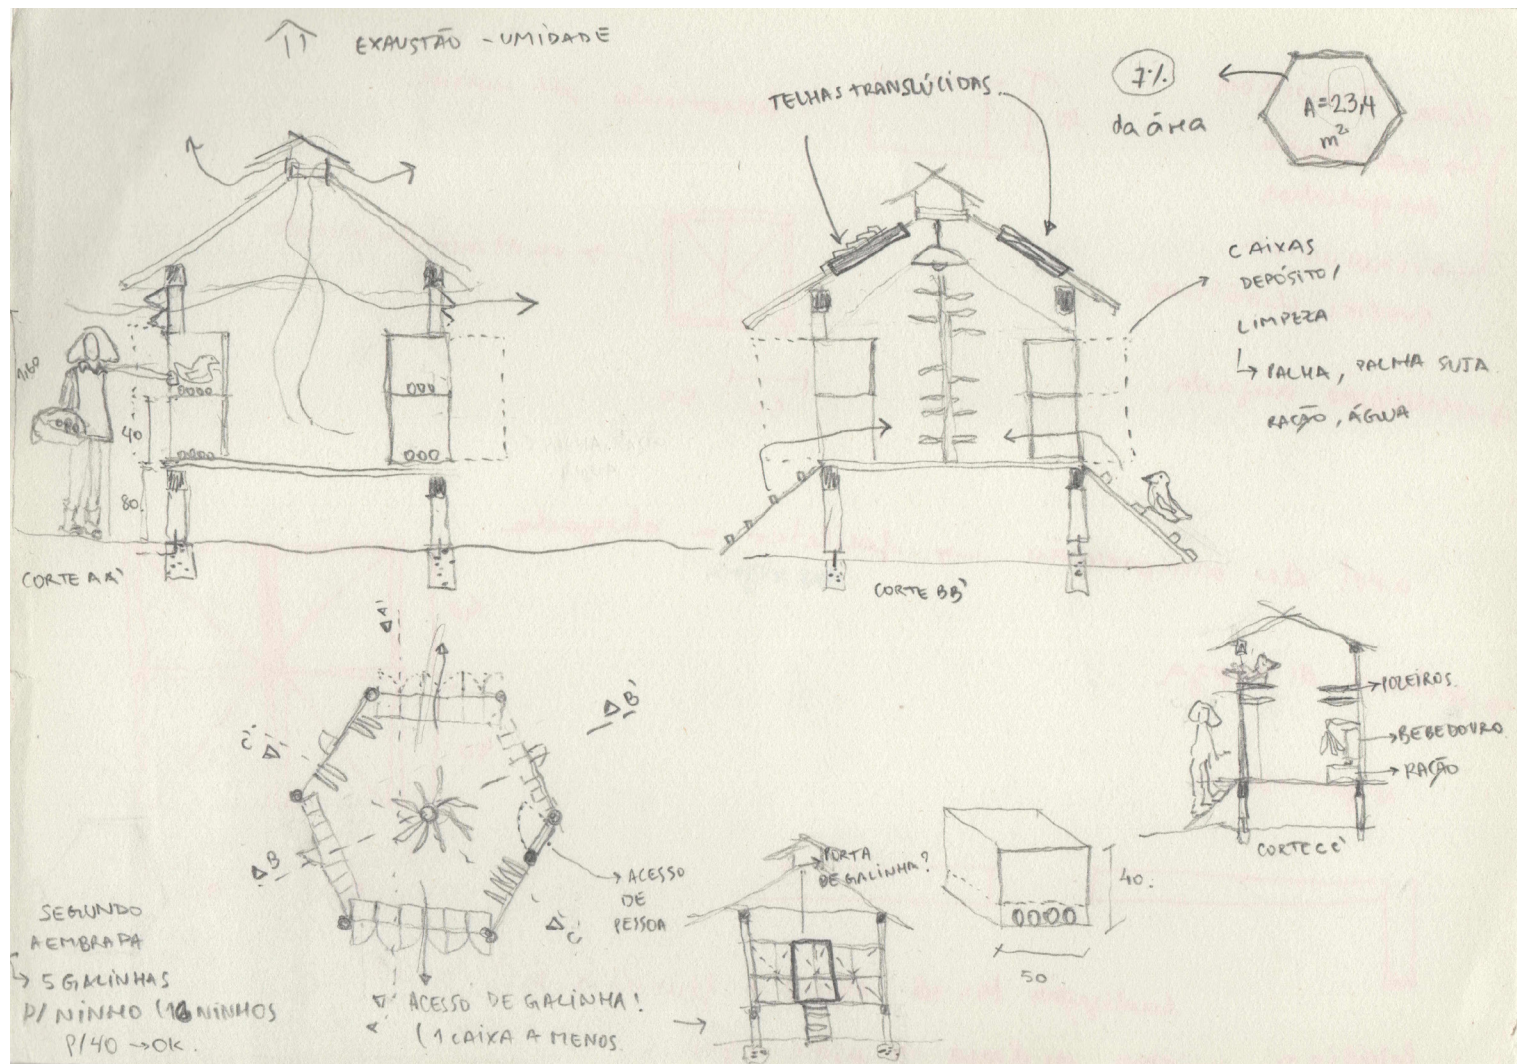 EXAUSTÃO - UMIDADE
TELHAS TRANSLÚCIDAS
7%
da área
A=23,4
m²
CAIXAS
DEPÓSITO/
LIMPEZA
↳ PALHA, PALHA SUJA
RAÇÃO, ÁGUA
1,60
40
80
CORTE AA'
CORTE BB'
B'
C'
B
C
ACESSO
DE
PESSOA
POLEIROS
BEBEDOURO
RAÇÃO
CORTE CC'
PORTA
DE GALINHA?
40
50
SEGUNDO
A EMBRAPA
↳ 5 GALINHAS
P/ NINHO (16 NINHOS
P/40 → OK.
ACESSO DE GALINHA!
(1 CAIXA A MENOS